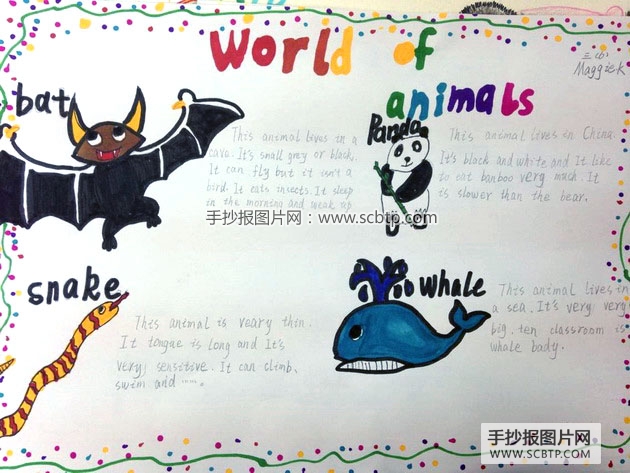 World of
animals
三(6)
Maggie.k
bat
This animal lives in a
cave. It's small grey or black.
It can fly but it isn't a
bird. It eats insects. It sleep
in the morning and weak up
Panda
This animal lives in China.
It's black and white and It like
to eat banboo very much. It
is slower than the bear.
手抄报图片网：www.scbtp.com
snake
This animal is veary thin.
It tongue is long and It's
very sensitive. It can climb,
swim and ……
whale
This animal lives in
a sea. It's very very
big, ten classroom is
whale body.
手抄报图片网
SCBTP.COM